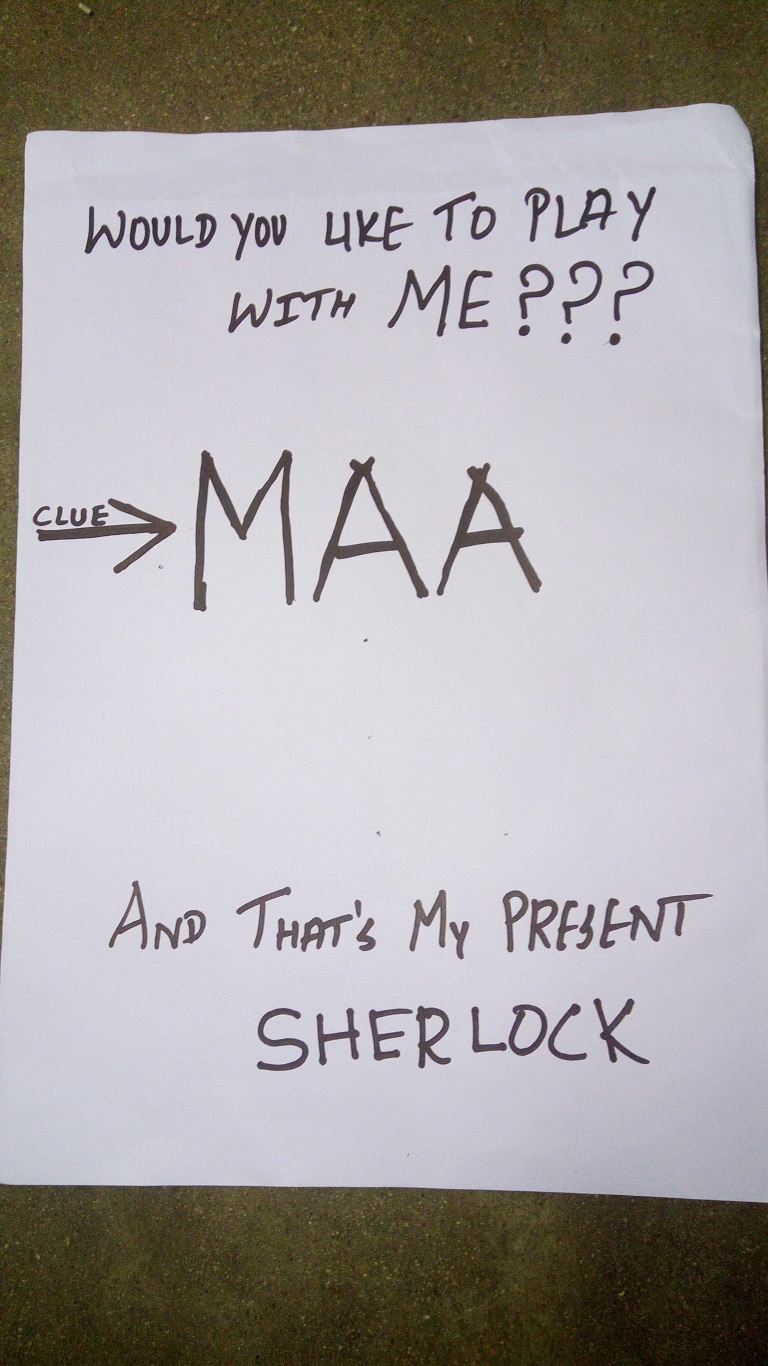 WOULD YOU LIKE TO PLAY
WITH ME???
CLUE
MAA
AND THAT'S MY PRESENT
SHERLOCK